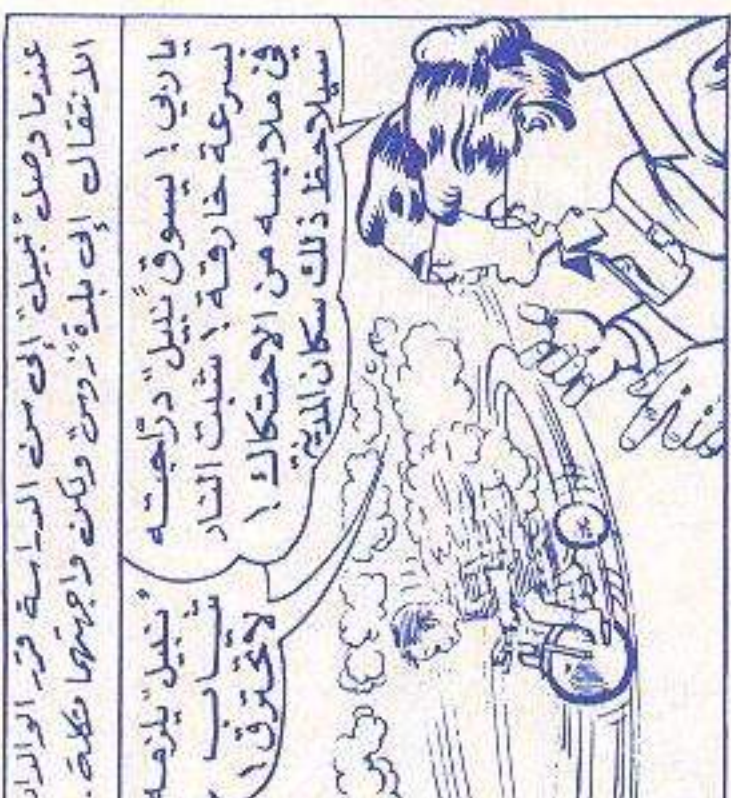 عندما وصل "نبيل" إلى سن الدراسة قرر الوالدا
الانتقال إلى بلدة ولكن واجهتهما مشكلة .
يا ربي ! يسوق "نبيل" دراجته
بسرعة خارقة ! شبت النار
في ملابسه من الاحتكاك !
سيلاحظ ذلك سكان المدينة
"نبيل" يلزمه
ثياب
لا تحترق !